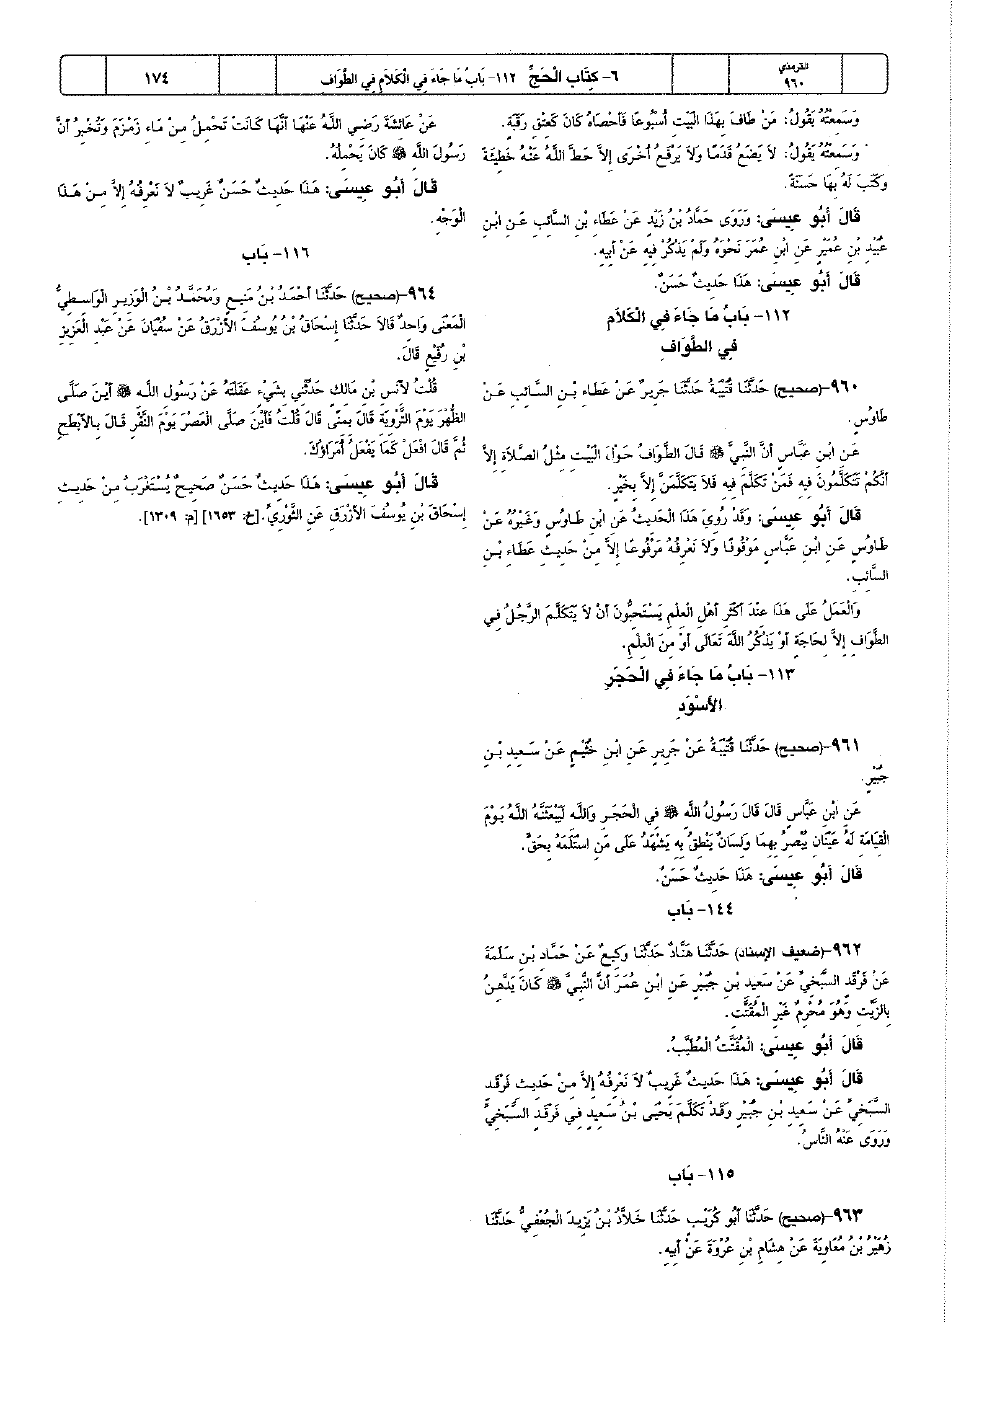 الترمذي
٩٦٠
٦- كِتَاب الْحَجِّ ١١٢- بَابُ مَا جَاءَ فِي الْكَلَامِ فِي الطَّوَافِ
١٧٤
وَسَمِعْتُهُ يَقُولُ: مَنْ طَافَ بِهَذَا الْبَيْتِ أُسْبُوعًا فَأَحْصَاهُ كَانَ كَعِتْقِ رَقَبَةٍ.
وَسَمِعْتُهُ يَقُولُ: لاَ يَضَعُ قَدَمًا وَلاَ يَرْفَعُ أُخْرَى إِلاَّ حَطَّ اللَّهُ عَنْهُ خَطِيئَةً
وَكَتَبَ لَهُ بِهَا حَسَنَةً.
قَالَ أَبُو عِيسَى: وَرَوَى حَمَّادُ بْنُ زَيْدٍ عَنْ عَطَاءِ بْنِ السَّائِبِ عَنِ ابْنِ
عُبَيْدِ بْنِ عُمَيْرٍ عَنِ ابْنِ عُمَرَ نَحْوَهُ وَلَمْ يَذْكُرْ فِيهِ عَنْ أَبِيهِ.
قَالَ أَبُو عِيسَى: هَذَا حَدِيثٌ حَسَنٌ.
١١٢- بَابُ مَا جَاءَ فِي الْكَلاَمِ
فِي الطَّوَافِ
٩٦٠-(صحيح) حَدَّثَنَا قُتَيْبَةُ حَدَّثَنَا جَرِيرٌ عَنْ عَطَاءِ بْنِ السَّائِبِ عَنْ
طَاوُسٍ.
عَنِ ابْنِ عَبَّاسٍ أَنَّ النَّبِيَّ ﷺ قَالَ الطَّوَافُ حَوْلَ الْبَيْتِ مِثْلُ الصَّلاَةِ إِلاَّ
أَنَّكُمْ تَتَكَلَّمُونَ فِيهِ فَمَنْ تَكَلَّمَ فِيهِ فَلاَ يَتَكَلَّمَنَّ إِلاَّ بِخَيْرٍ.
قَالَ أَبُو عِيسَى: وَقَدْ رُوِيَ هَذَا الْحَدِيثُ عَنِ ابْنِ طَاوُسٍ وَغَيْرُهُ عَنْ
طَاوُسٍ عَنِ ابْنِ عَبَّاسٍ مَوْقُوفًا وَلاَ نَعْرِفُهُ مَرْفُوعًا إِلاَّ مِنْ حَدِيثِ عَطَاءِ بْنِ
السَّائِبِ.
وَالْعَمَلُ عَلَى هَذَا عِنْدَ أَكْثَرِ أَهْلِ الْعِلْمِ يَسْتَحِبُّونَ أَنْ لاَ يَتَكَلَّمَ الرَّجُلُ فِي
الطَّوَافِ إِلاَّ لِحَاجَةٍ أَوْ يَذْكُرُ اللَّهَ تَعَالَى أَوْ مِنَ الْعِلْمِ.
١١٣- بَابُ مَا جَاءَ فِي الْحَجَرِ
الأَسْوَدِ
٩٦١-(صحيح) حَدَّثَنَا قُتَيْبَةُ عَنْ جَرِيرٍ عَنِ ابْنِ خُثَيْمٍ عَنْ سَعِيدِ بْنِ
جُبَيْرٍ.
عَنِ ابْنِ عَبَّاسٍ قَالَ قَالَ رَسُولُ اللَّهِ ﷺ فِي الْحَجَرِ وَاللَّهِ لَيَبْعَثَنَّهُ اللَّهُ يَوْمَ
الْقِيَامَةِ لَهُ عَيْنَانِ يُبْصِرُ بِهِمَا وَلِسَانٌ يَنْطِقُ بِهِ يَشْهَدُ عَلَى مَنِ اسْتَلَمَهُ بِحَقٍّ.
قَالَ أَبُو عِيسَى: هَذَا حَدِيثٌ حَسَنٌ.
١٤٤- بَاب
٩٦٢-(ضعيف الإسناد) حَدَّثَنَا هَنَّادٌ حَدَّثَنَا وَكِيعٌ عَنْ حَمَّادِ بْنِ سَلَمَةَ
عَنْ فَرْقَدٍ السَّبَخِيِّ عَنْ سَعِيدِ بْنِ جُبَيْرٍ عَنِ ابْنِ عُمَرَ أَنَّ النَّبِيَّ ﷺ كَانَ يَدَّهِنُ
بِالزَّيْتِ وَهُوَ مُحْرِمٌ غَيْرِ الْمُقَتَّتِ.
قَالَ أَبُو عِيسَى: الْمُقَتَّتُ الْمُطَيَّبُ.
قَالَ أَبُو عِيسَى: هَذَا حَدِيثٌ غَرِيبٌ لاَ نَعْرِفُهُ إِلاَّ مِنْ حَدِيثِ فَرْقَدٍ
السَّبَخِيِّ عَنْ سَعِيدِ بْنِ جُبَيْرٍ وَقَدْ تَكَلَّمَ يَحْيَى بْنُ سَعِيدٍ فِي فَرْقَدٍ السَّبَخِيِّ
وَرَوَى عَنْهُ النَّاسُ.
١١٥- بَاب
٩٦٣-(صحيح) حَدَّثَنَا أَبُو كُرَيْبٍ حَدَّثَنَا خَلاَّدُ بْنُ يَزِيدَ الْجُعْفِيُّ حَدَّثَنَا
زُهَيْرُ بْنُ مُعَاوِيَةَ عَنْ هِشَامِ بْنِ عُرْوَةَ عَنْ أَبِيهِ.
عَنْ عَائِشَةَ رَضِي اللَّهُ عَنْهَا أَنَّهَا كَانَتْ تَحْمِلُ مِنْ مَاءِ زَمْزَمَ وَتُخْبِرُ أَنَّ
رَسُولَ اللَّهِ ﷺ كَانَ يَحْمِلُهُ.
قَالَ أَبُو عِيسَى: هَذَا حَدِيثٌ حَسَنٌ غَرِيبٌ لاَ نَعْرِفُهُ إِلاَّ مِنْ هَذَا
الْوَجْهِ.
١١٦- بَاب
٩٦٤-(صحيح) حَدَّثَنَا أَحْمَدُ بْنُ مَنِيعٍ وَمُحَمَّدُ بْنُ الْوَزِيرِ الْوَاسِطِيُّ
الْمَعْنَى وَاحِدٌ قَالاَ حَدَّثَنَا إِسْحَاقُ بْنُ يُوسُفَ الأَزْرَقُ عَنْ سُفْيَانَ عَنْ عَبْدِ الْعَزِيزِ
بْنِ رُفَيْعٍ قَالَ.
قُلْتُ لأَنَسِ بْنِ مَالِكٍ حَدِّثْنِي بِشَيْءٍ عَقَلْتَهُ عَنْ رَسُولِ اللَّهِ ﷺ أَيْنَ صَلَّى
الظُّهْرَ يَوْمَ التَّرْوِيَةِ قَالَ بِمِنًى قَالَ قُلْتُ فَأَيْنَ صَلَّى الْعَصْرَ يَوْمَ النَّفْرِ قَالَ بِالأَبْطَحِ
ثُمَّ قَالَ افْعَلْ كَمَا يَفْعَلُ أُمَرَاؤُكَ.
قَالَ أَبُو عِيسَى: هَذَا حَدِيثٌ حَسَنٌ صَحِيحٌ يُسْتَغْرَبُ مِنْ حَدِيثِ
إِسْحَاقَ بْنِ يُوسُفَ الأَزْرَقِ عَنِ الثَّوْرِيِّ.[خ: ١٦٥٣] [م: ١٣٠٩].